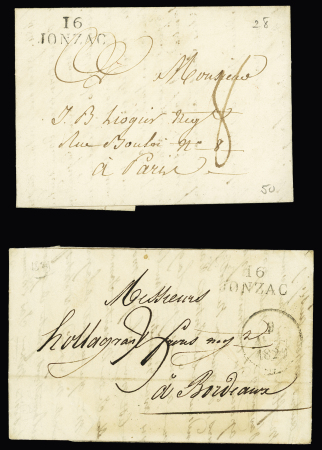 16
JONZAC
28
Monsieur
J. B Liogier Negt
8
Rue Bouloi No 8
à Paris
50
16
JONZAC
Messieurs
frères
à Bordeaux